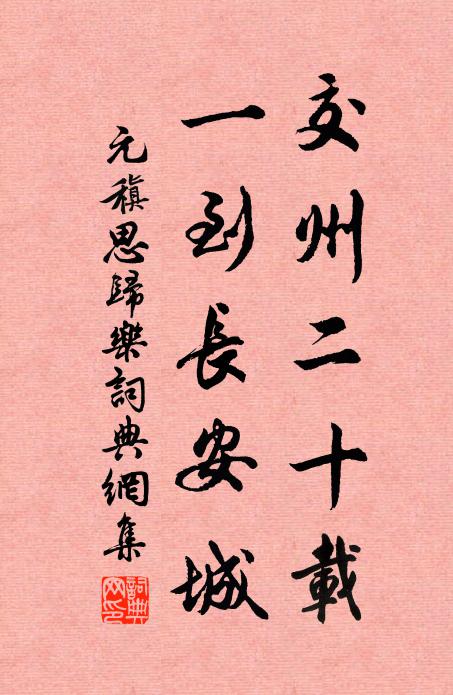 交州二十載
一到長安城
元稹思歸樂詞典網集
詞典網印